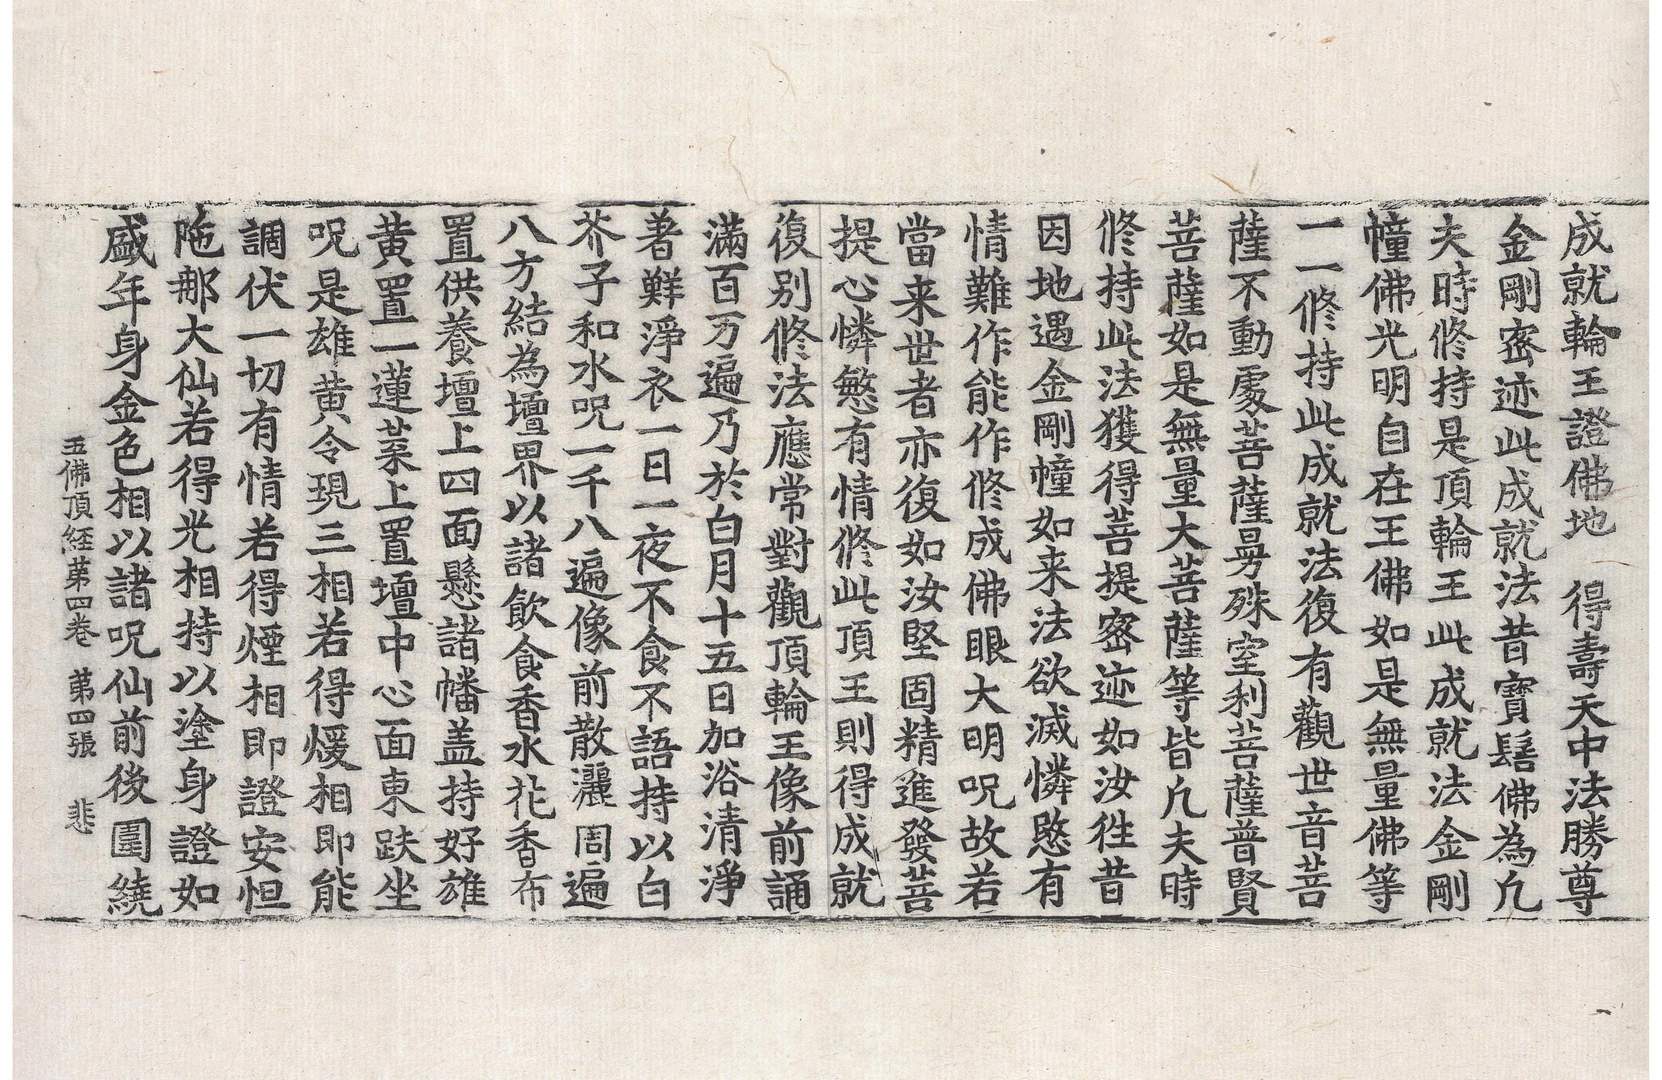 成就輪王證佛地　得壽天中法勝尊
金剛密迹此成就法昔寶髻佛為凢
夫時修持是頂輪王此成就法金剛
幢佛光明自在王佛如是無量佛等
一一修持此成就法復有觀世音菩
薩不動處菩薩曼殊室利菩薩普賢
菩薩如是無量大菩薩等皆凢夫時
修持此法獲得菩提密迹如汝徃昔
因地遇金剛幢如来法欲滅憐愍有
情難作能作修成佛眼大明呪故若
當来世者亦復如汝堅固精進發菩
提心憐慜有情修此頂王則得成就
復別修法應常對觀頂輪王像前誦
滿百万遍乃於白月十五日加浴清淨
著鮮淨衣一日一夜不食不語持以白
芥子和水呪一千八遍像前散灑周遍
八方結為壇界以諸飲食香水花香布
置供養壇上四面懸諸幡盖持好雄
黄置一蓮菜上置壇中心面東趺坐
呪是雄黄令現三相若得煖相即能
調伏一切有情若得煙相即證安怛
陁那大仙若得光相持以塗身證如
盛年身金色相以諸呪仙前後圍繞
五佛頂経苐四卷　苐四張　悲